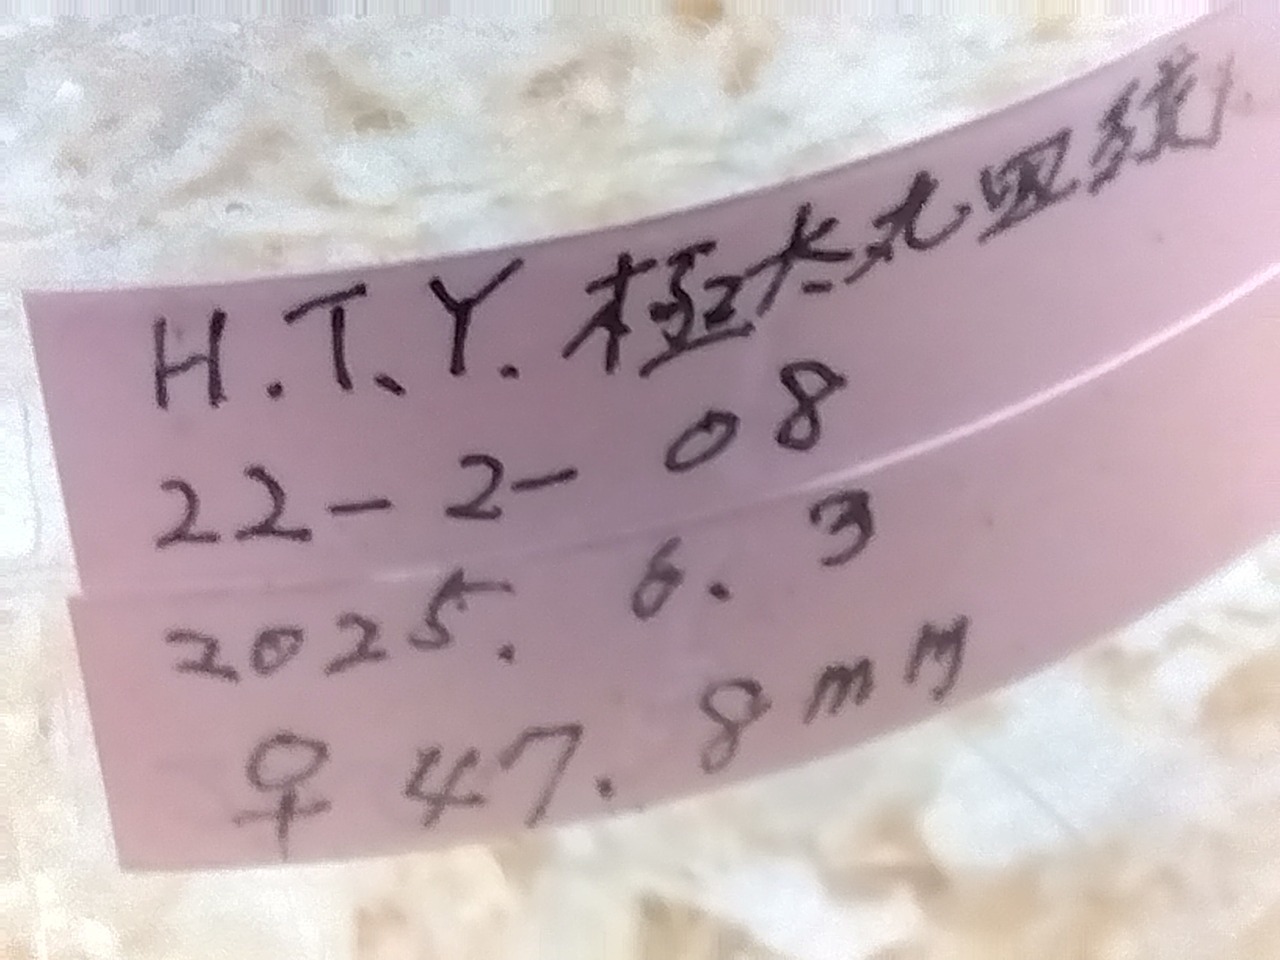 H.T.Y. 極太血統
22-2-08
2025. 6. 3
♀ 47.8mm